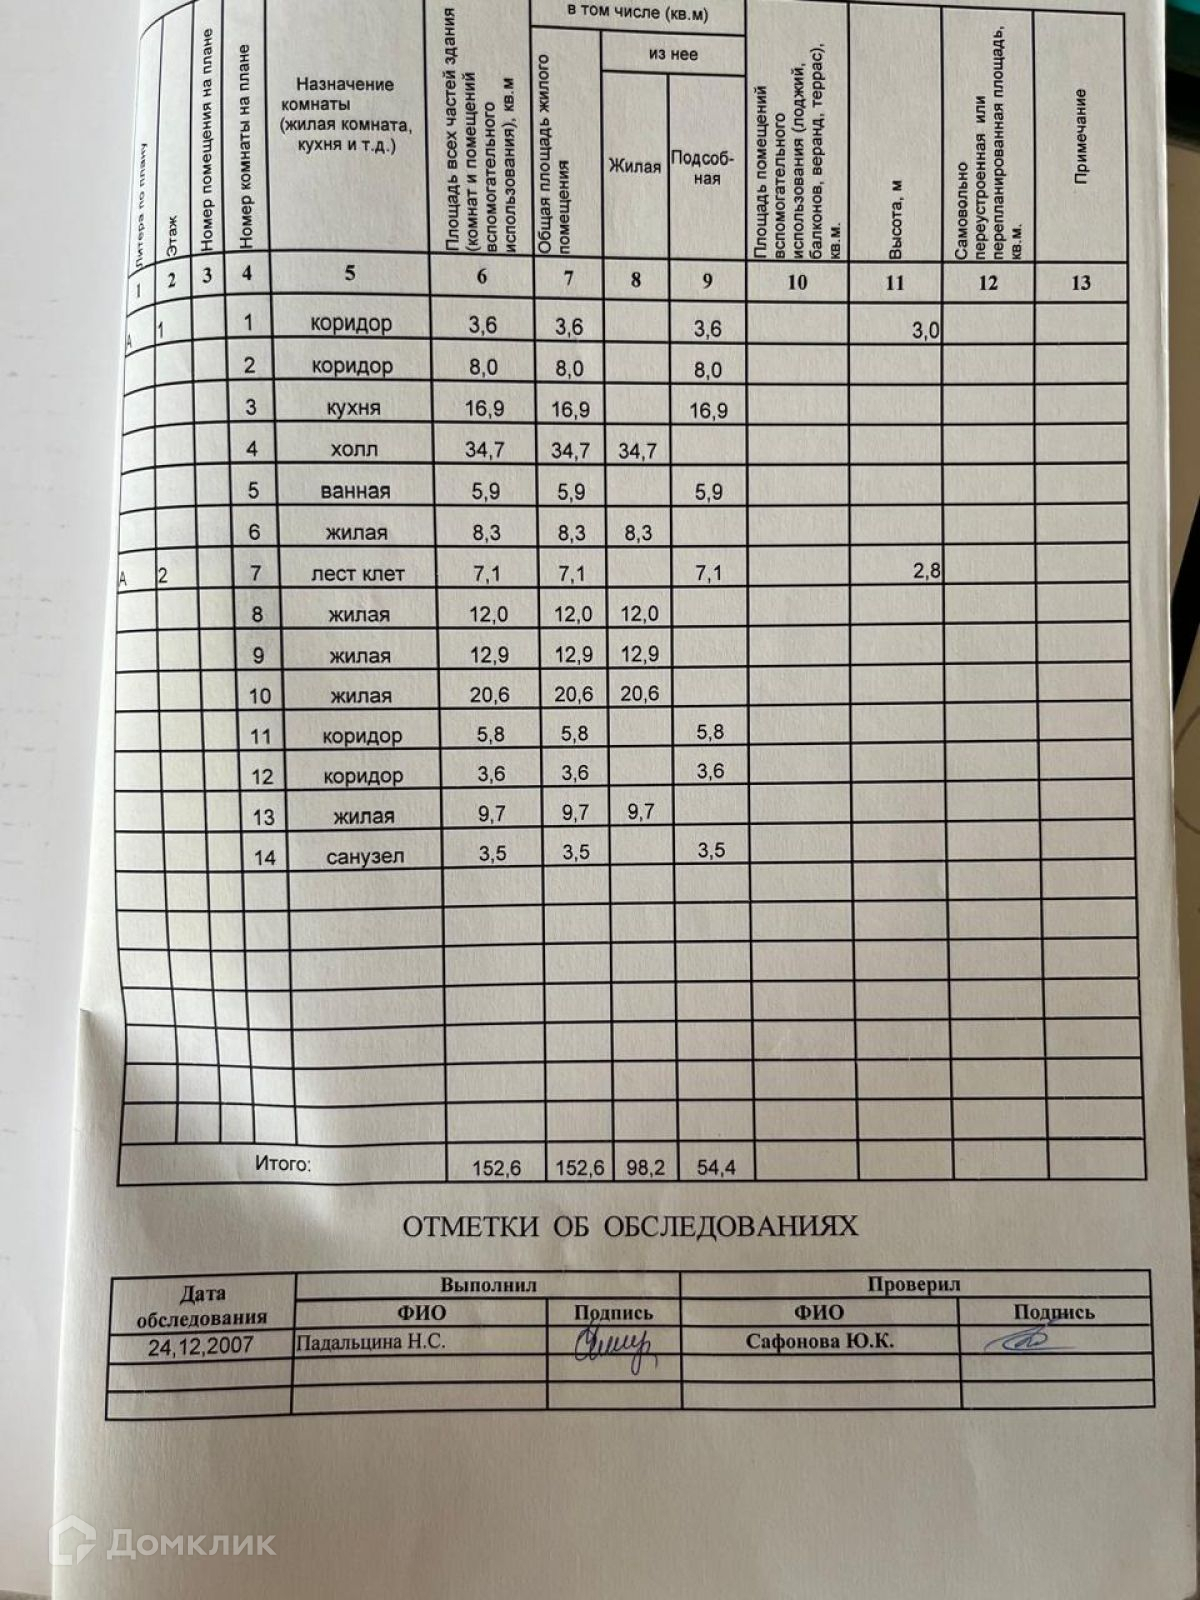 Литера по плану
Этаж
Номер помещения на плане
Номер комнаты на плане
Назначение
комнаты
(жилая комната,
кухня и т.д.)
Площадь всех частей здания
(комнат и помещений
вспомогательного
использования), кв.м
в том числе (кв.м)
Общая площадь жилого
помещения
из нее
Жилая
Подсоб-
ная
Площадь помещений
вспомогательного
использования (лоджий,
балконов, веранд, террас),
кв.м.
Высота, м
Самовольно
переустроенная или
перепланированная площадь,
кв.м.
Примечание
1 2 3 4 5 6 7 8 9 10 11 12 13
А 1 1 коридор 3,6 3,6 3,6 3,0
2 коридор 8,0 8,0 8,0
3 кухня 16,9 16,9 16,9
4 холл 34,7 34,7 34,7
5 ванная 5,9 5,9 5,9
6 жилая 8,3 8,3 8,3
А 2 7 лест клет 7,1 7,1 7,1 2,8
8 жилая 12,0 12,0 12,0
9 жилая 12,9 12,9 12,9
10 жилая 20,6 20,6 20,6
11 коридор 5,8 5,8 5,8
12 коридор 3,6 3,6 3,6
13 жилая 9,7 9,7 9,7
14 санузел 3,5 3,5 3,5
Итого: 152,6 152,6 98,2 54,4
ОТМЕТКИ ОБ ОБСЛЕДОВАНИЯХ
Дата
обследования
Выполнил Проверил
ФИО Подпись ФИО Подпись
24,12,2007 Падальцина Н.С. Сафонова Ю.К.
Домклик